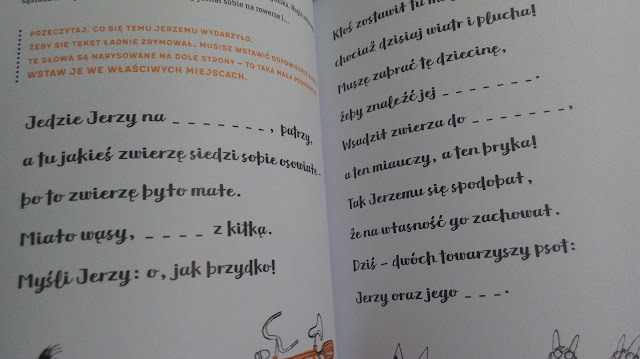 sobie na rowerze i...
PRZECZYTAJ, CO SIĘ TEMU JERZEMU WYDARZYŁO.
ŻEBY SIĘ TEKST ŁADNIE ZRYMOWAŁ, MUSISZ WSTAWIĆ
TE SŁOWA SĄ NARYSOWANE NA DOLE STRONY – TO TAKA MAŁA
WSTAW JE WE WŁAŚCIWYCH MIEJSCACH.
Jedzie Jerzy na _ _ _ _ _ _ _, patrzy,
a tu jakieś zwierzę siedzi sobie osowiałe.
bo to zwierzę było małe.
Miało wąsy, _ _ _ _ z kitką.
Myśli Jerzy: o, jak brzydko!
Ktoś zostawił tu
chociaż dzisiaj wiatr i plucha!
Muszę zabrać tę dziecinę,
żeby znaleźć jej _ _ _ _ _ _ _.
Wsadził zwierza do _ _ _ _ _ _ _,
a ten miauczy, a ten bryka!
Tak Jerzemu się spodobał,
że na własność go zachował.
Dziś – dwóch towarzyszy psot:
Jerzy oraz jego _ _ _.